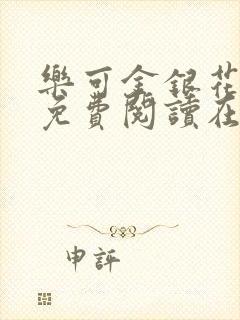 樂可金銀花
免費閱讀在
申評